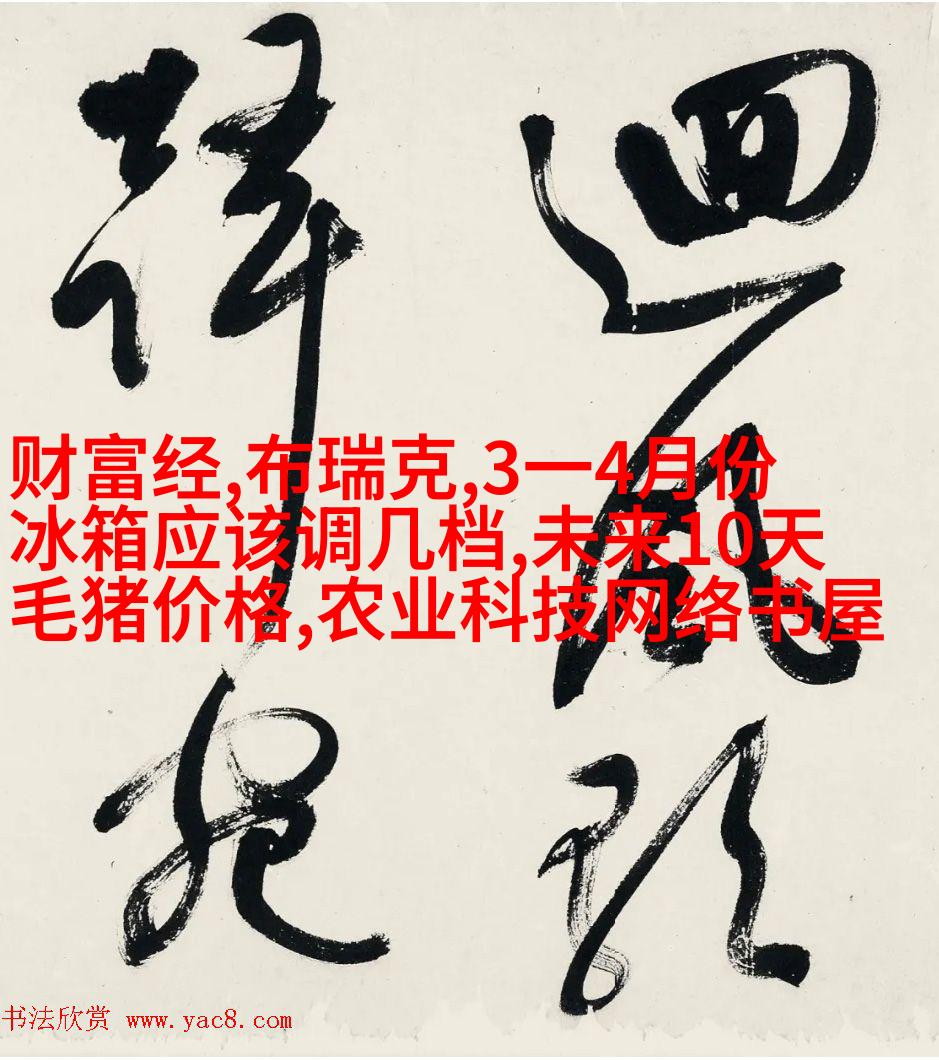 迴風
财富经,布瑞克,3一4月份
冰箱应该调几档,未来10天
毛猪价格,农业科技网络书屋
书法欣赏 www.yac8.com